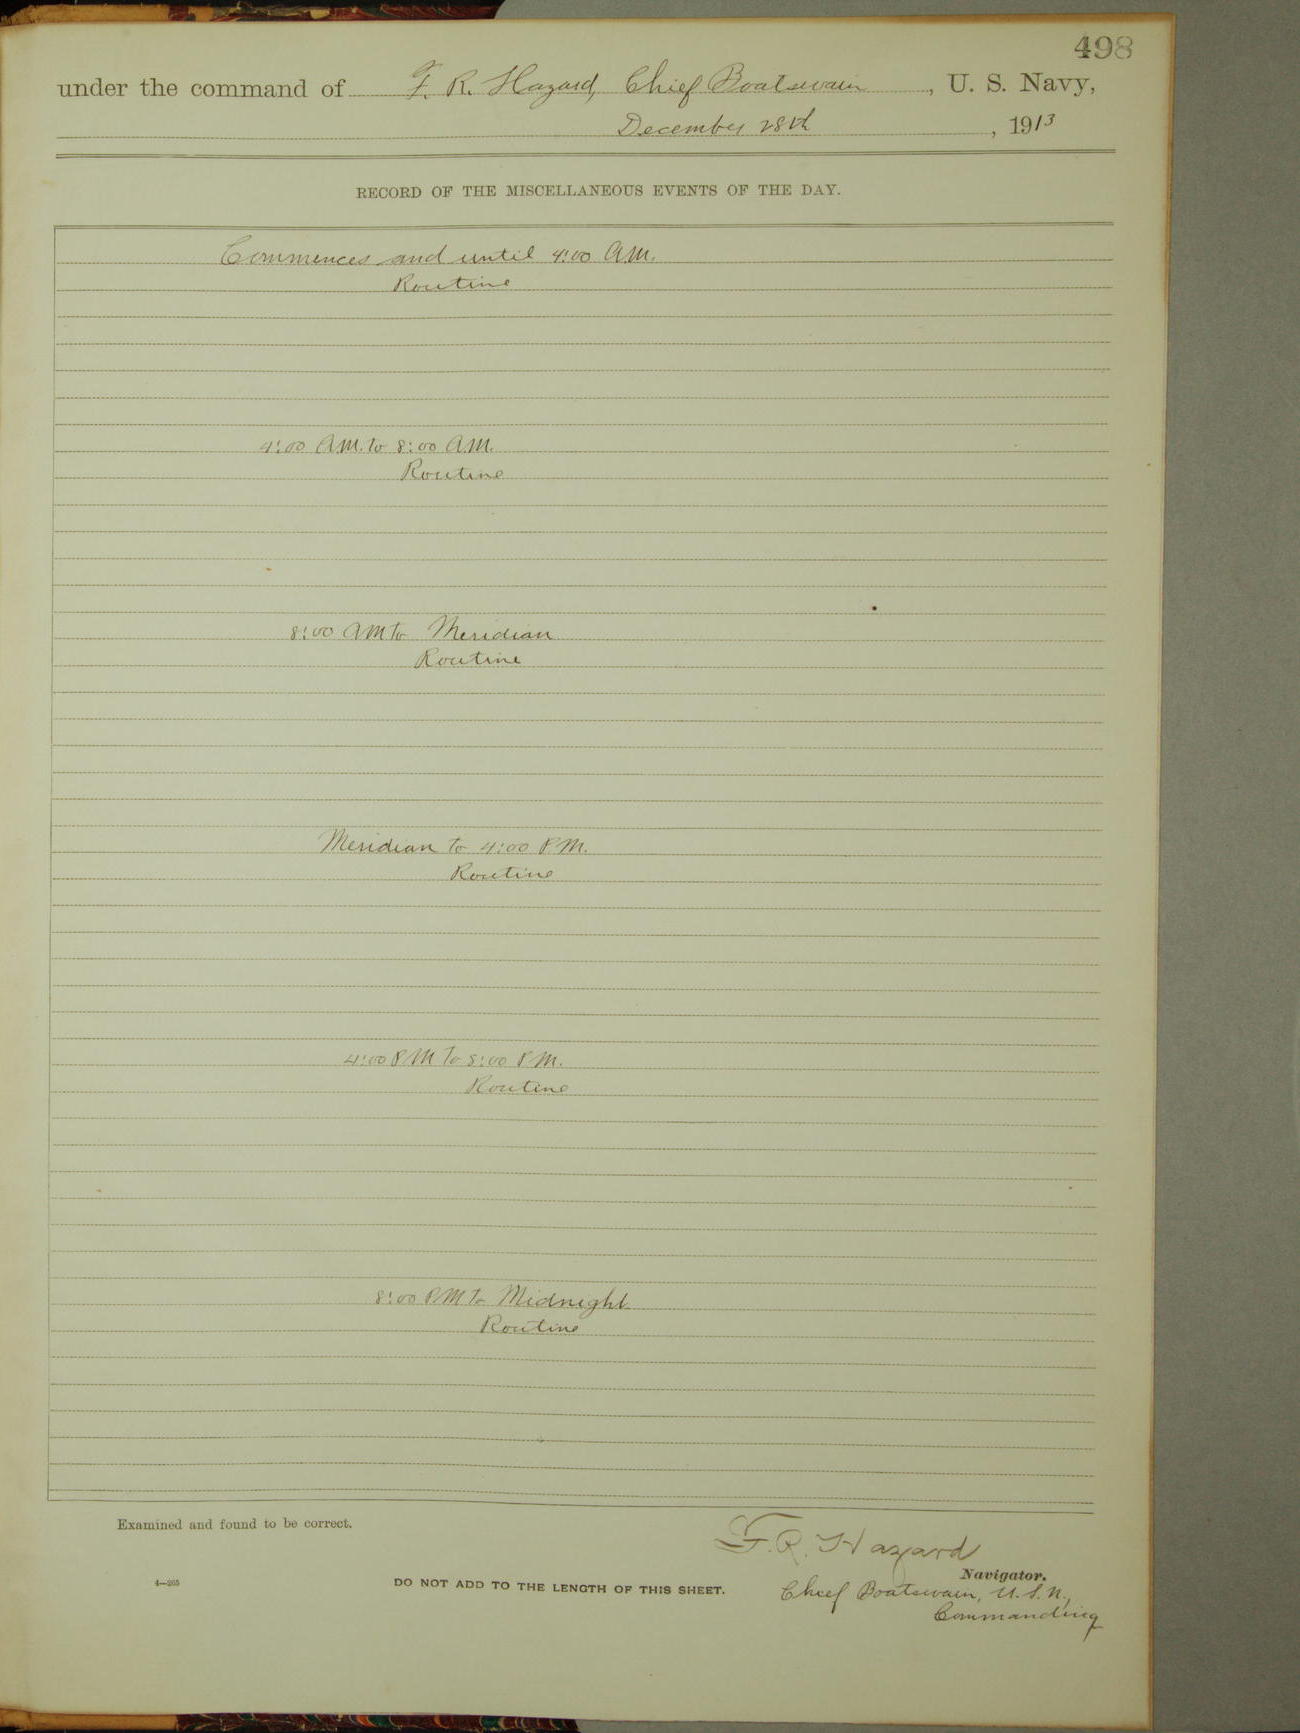 498
under the command of F. R. Hazard, Chief Boatswain, U. S. Navy,
December 28th, 1913
RECORD OF THE MISCELLANEOUS EVENTS OF THE DAY.
Commences and until 4:00 A.M.
Routine
4:00 A.M. to 8:00 A.M.
Routine
8:00 AM to Meridian
Routine
Meridian to 4:00 P.M.
Routine
4:00 PM to 8:00 P.M.
Routine
8:00 P.M to Midnight
Routine
Examined and found to be correct.
F. R. Hazard
Navigator.
4—265
DO NOT ADD TO THE LENGTH OF THIS SHEET.
Chief Boatswain, U.S.N.,
Commanding